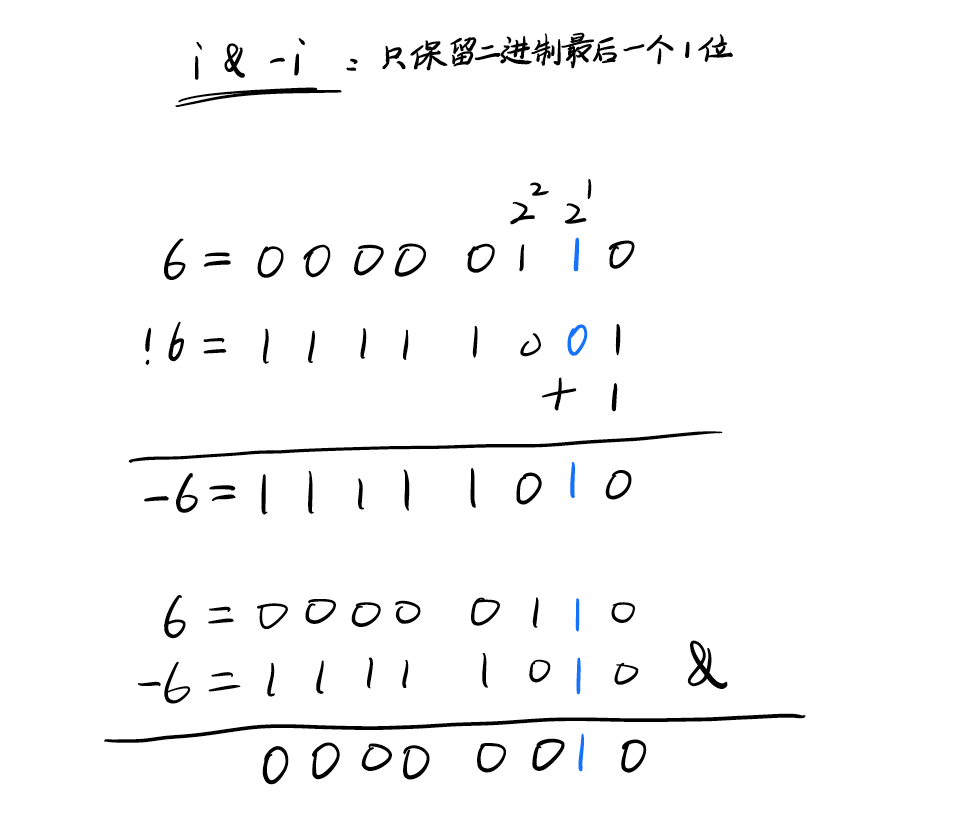 i & -i : 只保留二进制最后一个1位
2² 2¹
6 = 0 0 0 0 0 1 1 0
!6 = 1 1 1 1 1 0 0 1
+ 1
-6 = 1 1 1 1 1 0 1 0
6 = 0 0 0 0 0 1 1 0
-6 = 1 1 1 1 1 0 1 0 &
0 0 0 0 0 0 1 0